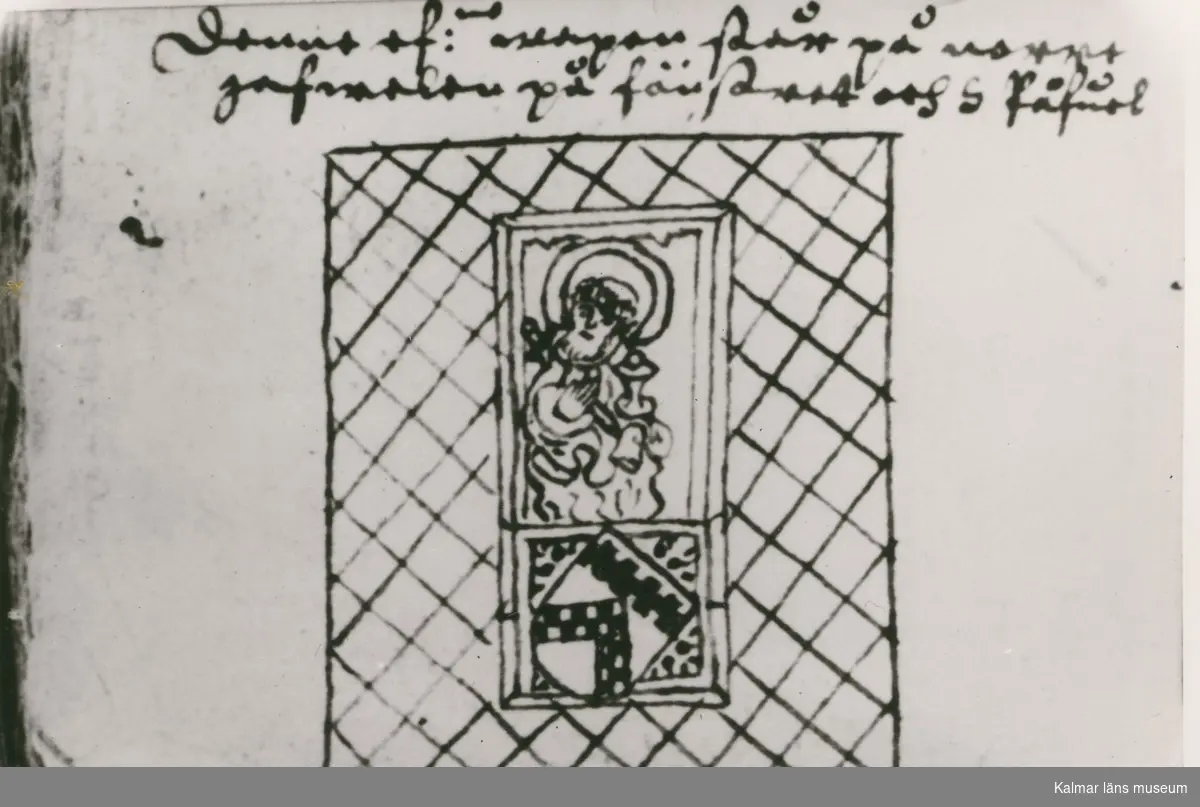 Denne ef: wapen står på norre
gafwelen på fönstret och S Påfuel
Kalmar läns museum